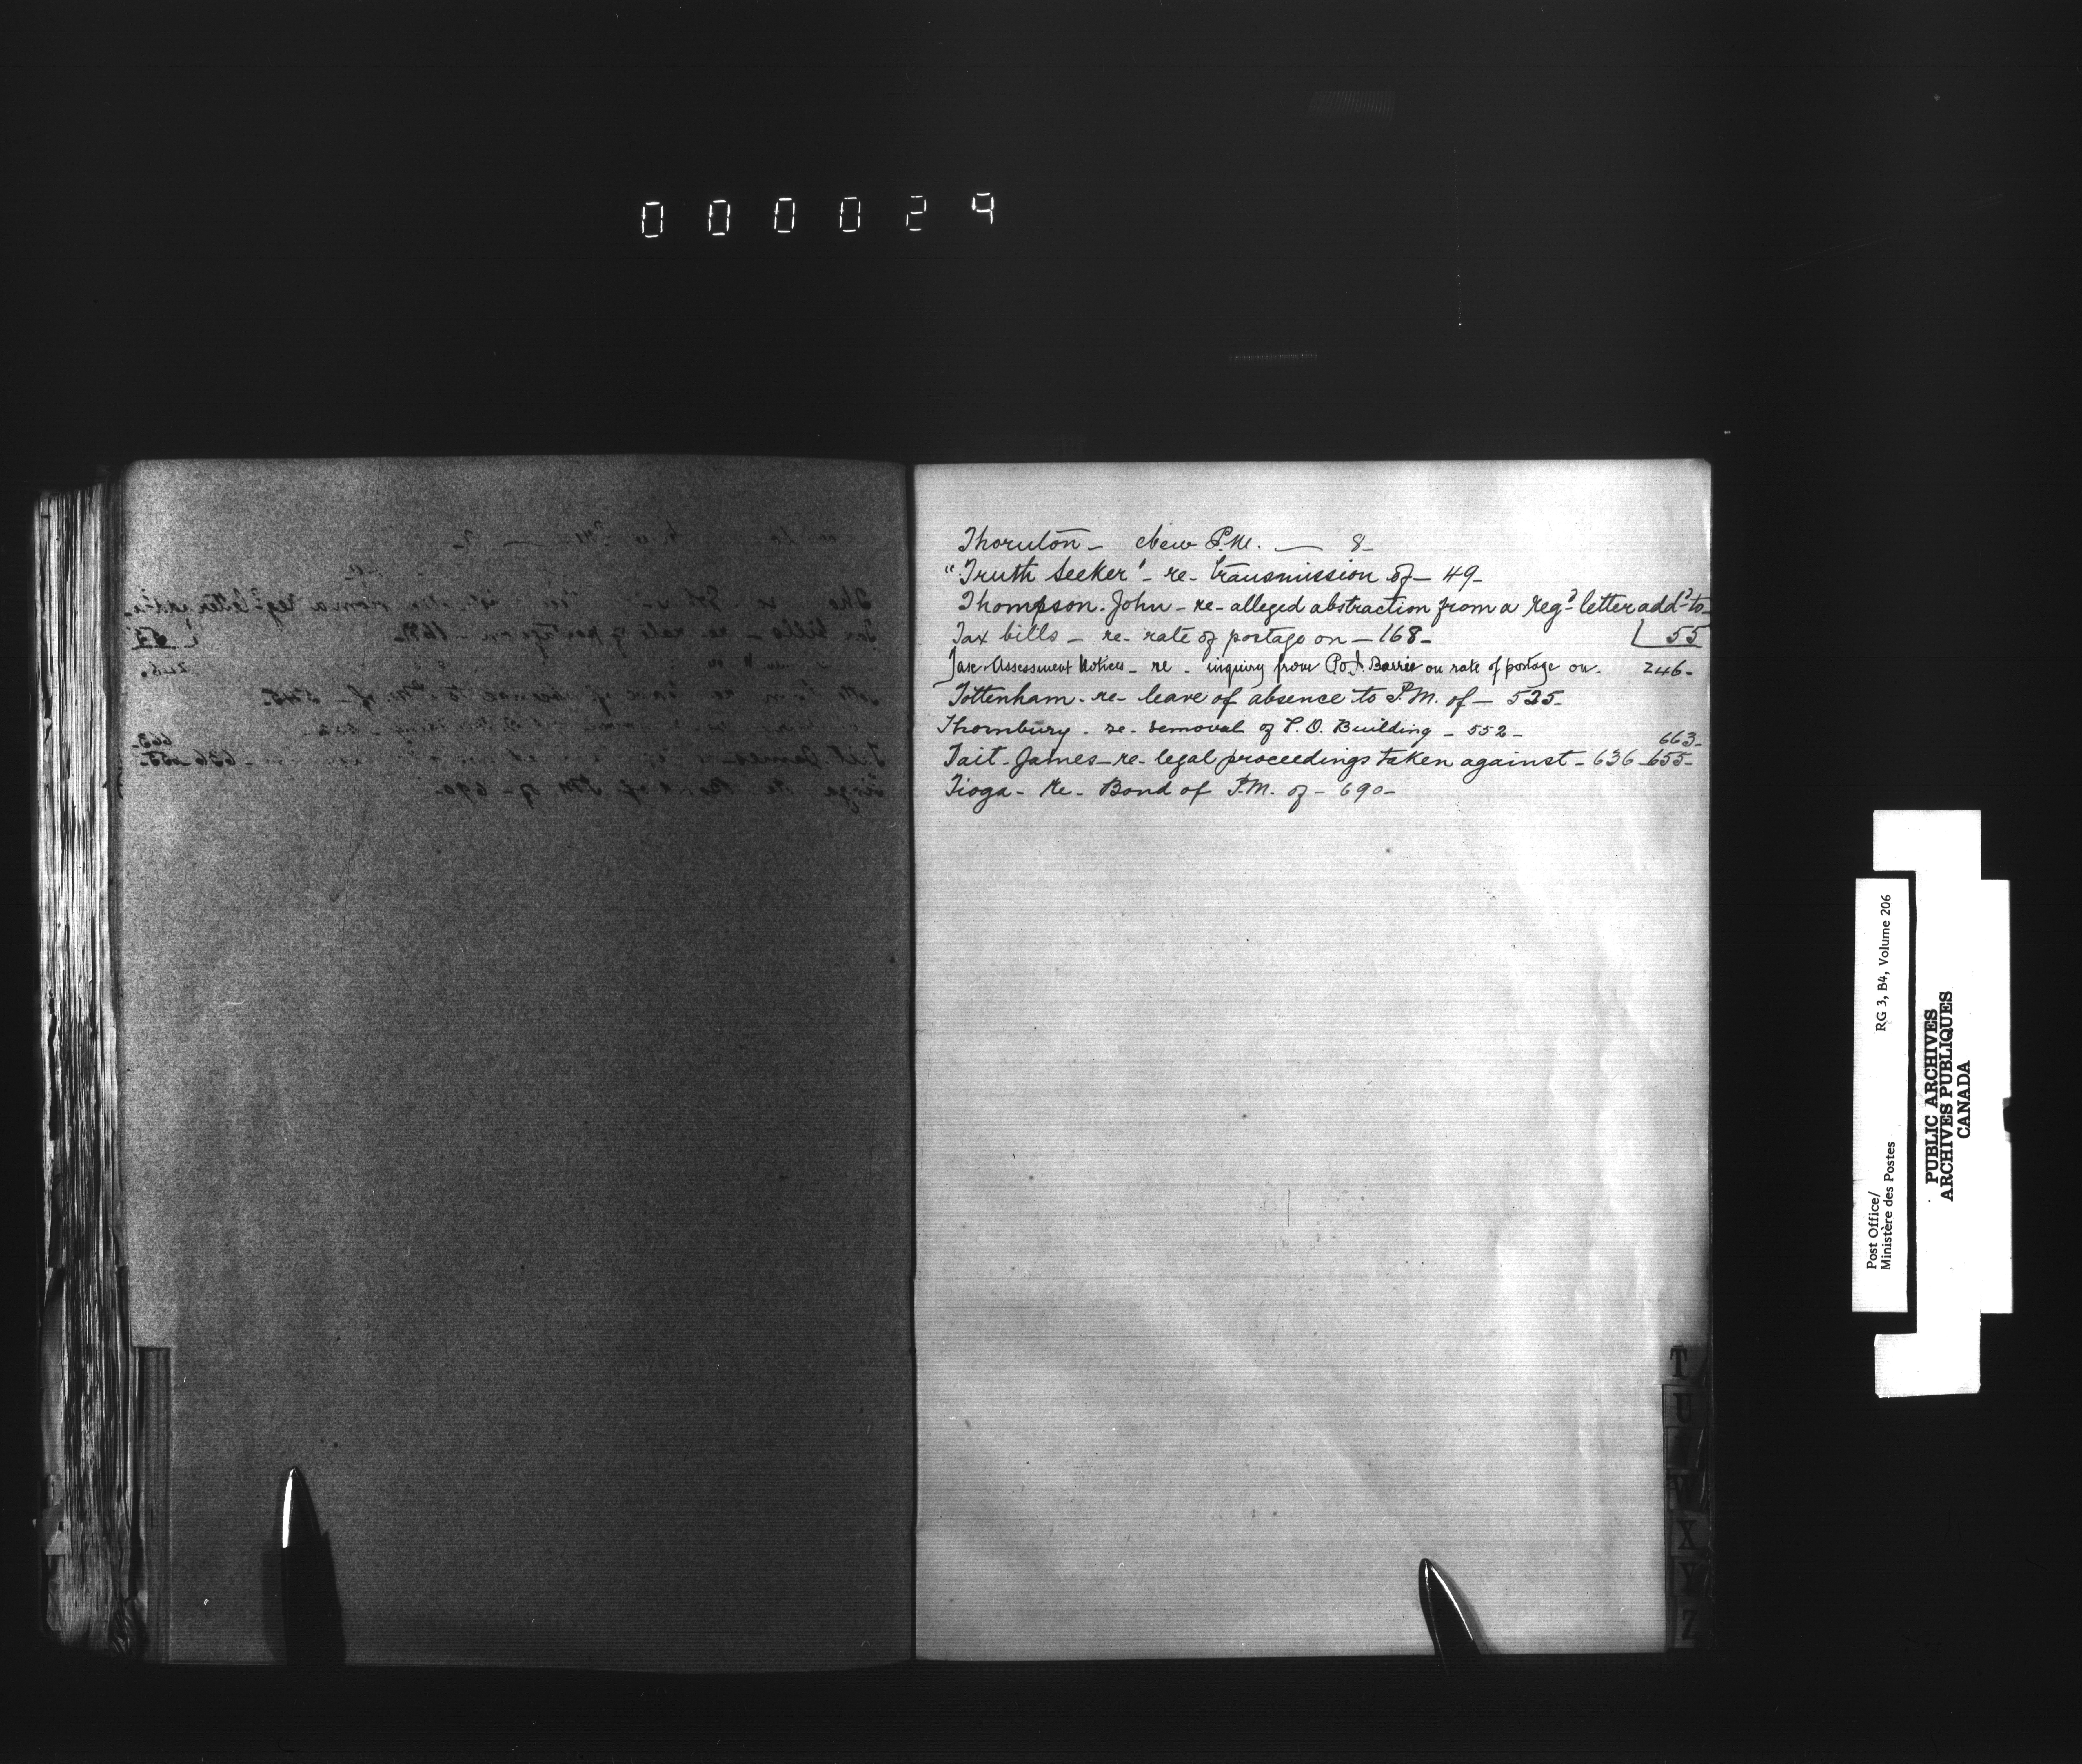 000029
Thornton - New P.M. — 8 -
"Truth Seeker" - re - transmission of - 49 -
Thompson. John - re - alleged abstraction from a reg.d letter add.d to -
Tax bills - re - rate of postage on - 168 -
55
Tax Assessment Notices - re - inquiry from P.O. Barrie on rate of postage on. 246 -
Tottenham - re - leave of absence to P.M. of - 525 -
Thornbury - re - removal of P.O. Building - 552 -
663 -
Tait - James - re - legal proceedings taken against - 636 - 655 -
Tioga - Re - Bond of P.M. of - 690 -
T
U
W
X
Y
Z
Post Office/
Ministère des Postes
RG 3, B4, Volume 206
PUBLIC ARCHIVES
ARCHIVES PUBLIQUES
CANADA